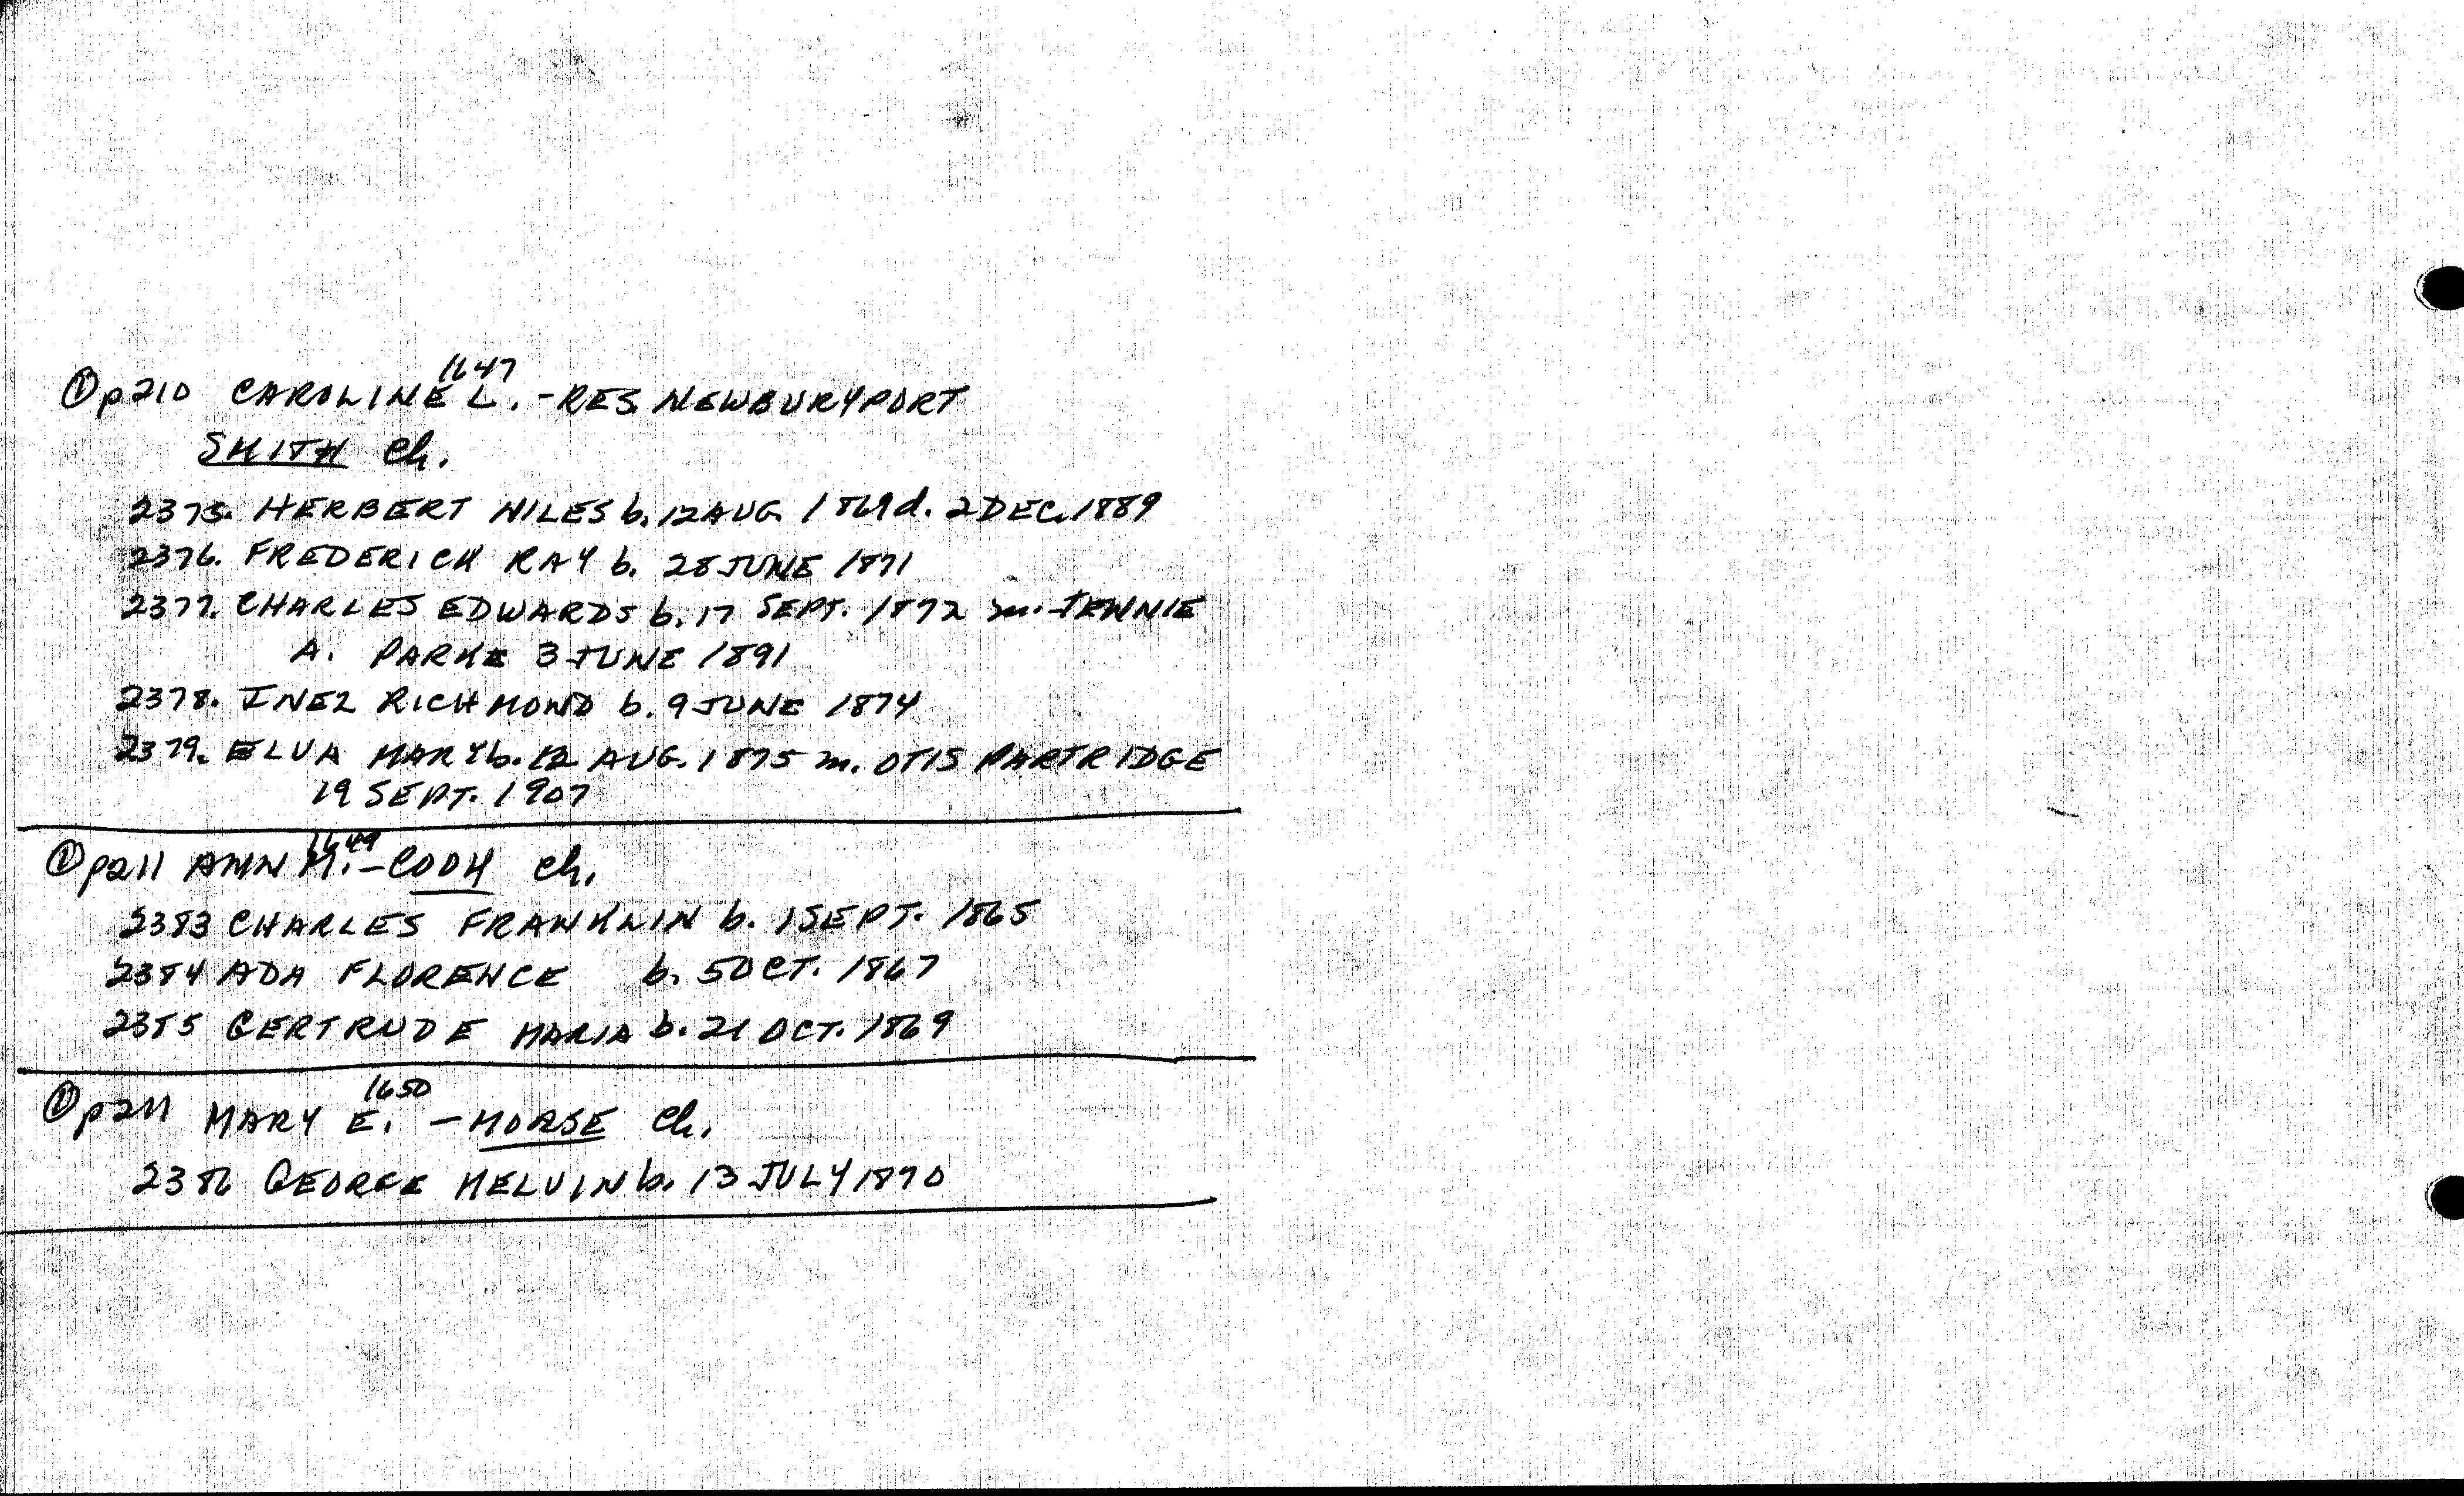 ① p210 CAROLINE L.¹⁶⁴⁷ -RES NEWBURYPORT
SMITH Ch.
2375. HERBERT NILES b. 12 AUG. 1869 d. 2 DEC. 1889
2376. FREDERICK RAY b. 28 JUNE 1871
2377. CHARLES EDWARDS b. 17 SEPT. 1872 m. JENNIE
A. PARKE 3 JUNE 1891
2378. INEZ RICHMOND b. 9 JUNE 1874
2379. ELVA MARY b. 12 AUG. 1875 m. OTIS PARTRIDGE
19 SEPT. 1907
① p211 ANN M.¹⁶⁴⁹ - COOK Ch.
2383 CHARLES FRANKLIN b. 1 SEPT. 1865
2384 ADA FLORENCE b. 5 OCT. 1867
2385 GERTRUDE MARIA b. 21 OCT. 1869
① p211 MARY E.¹⁶⁵⁰ - MORSE Ch.
2386 GEORGE MELVIN b. 13 JULY 1870